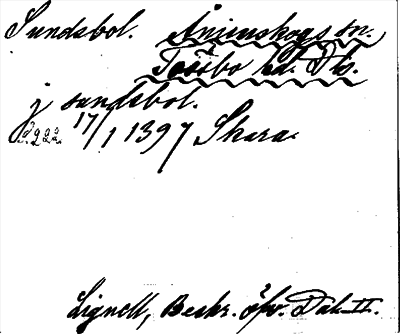 Sundsbol. Ånimskogs sn.
Tössbo hd. Dls.
j sundsbol.
17/1 1397 Skara.
Lignell, Beskr. öfv. Dal II.